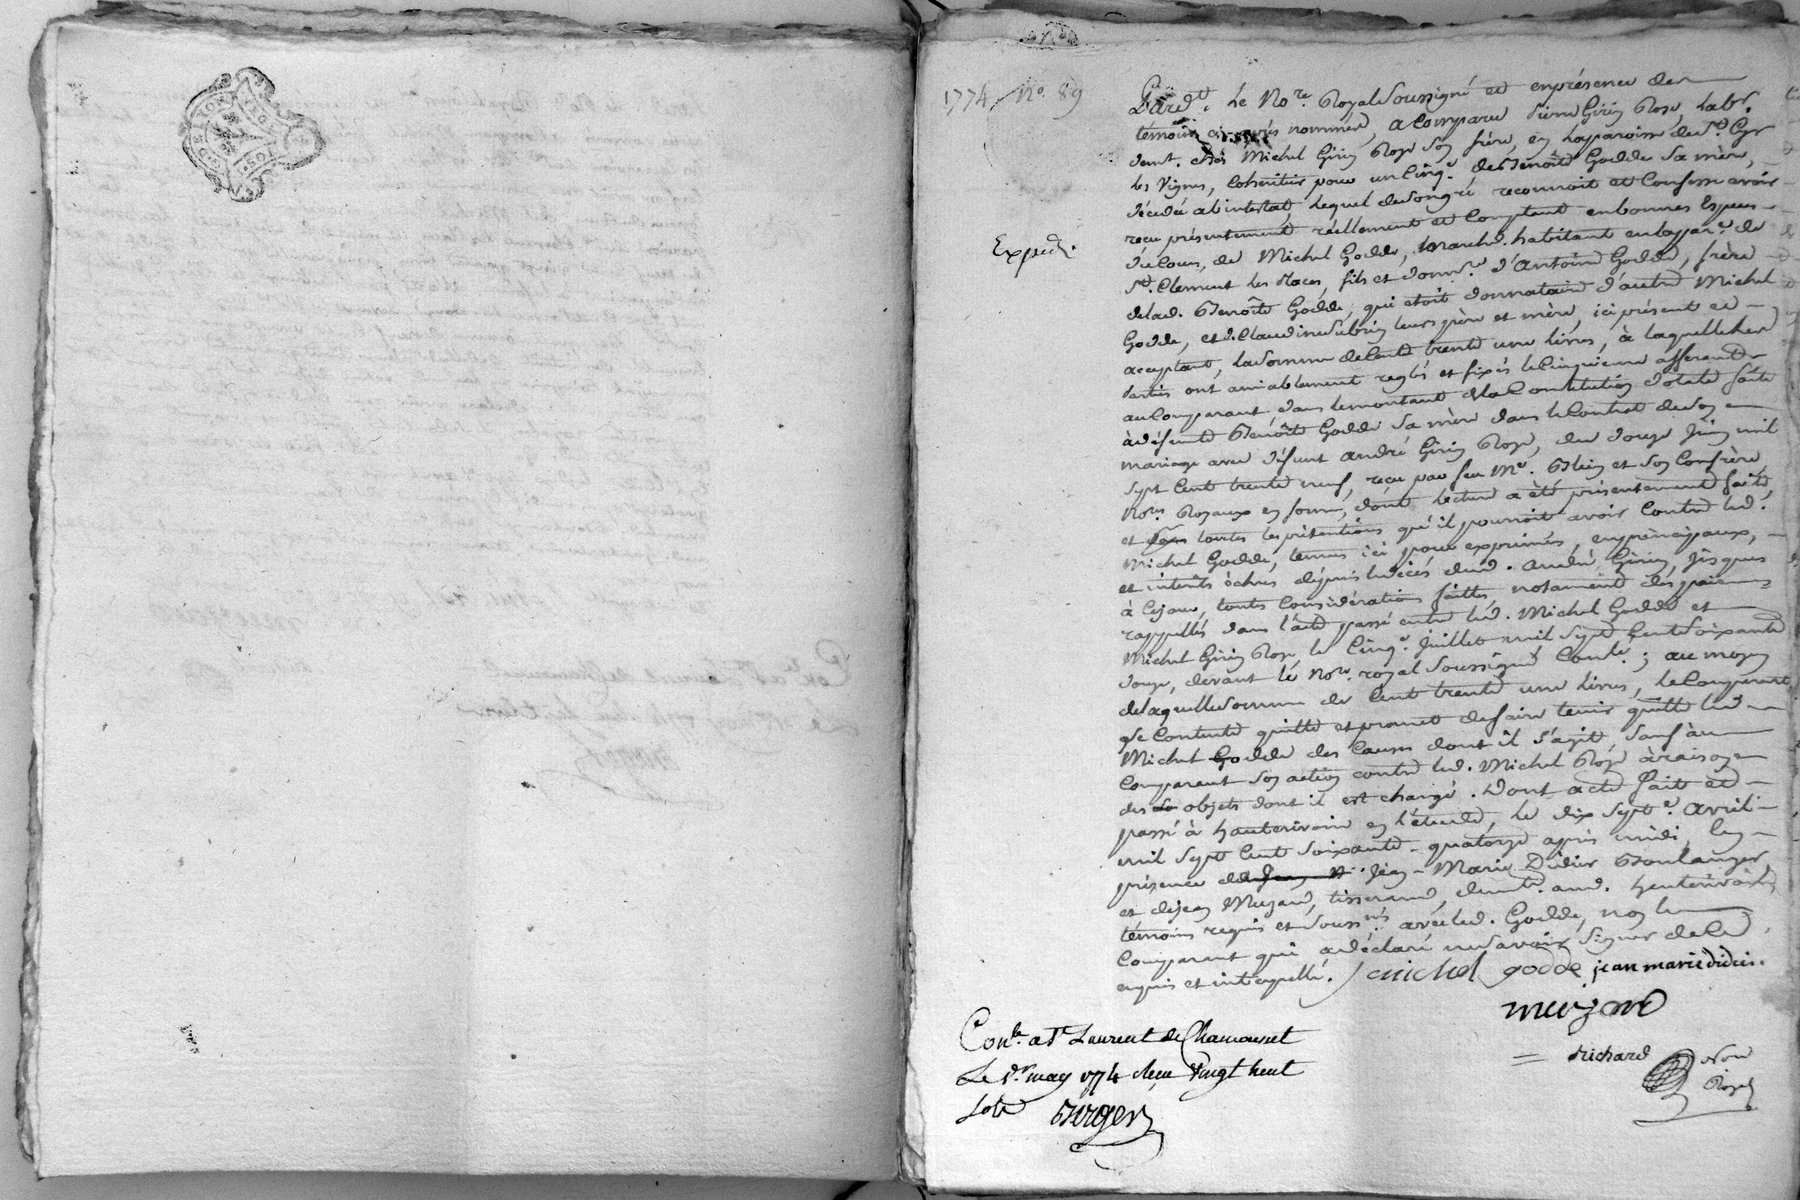 1774 / No. 89
Pardt. Le Nore. Royal Soussigné et en présence des
temoins cy après nommés, a Comparu Girin Roze, Labr.
demt. chés Michel Girin Roze Son frère, en la paroisse de St. Cyr
les Vignes, Coheritier pour un Cinqe. de Benoîte Godde Sa mère,
décédée ab intestat, Lequel de Son gré reconnoit et Confesse avoir
reçu présentement réellement et Comptant en bonnes Especes
du Cours, de Michel Godde, Marchd. habitant en la parr.e de
St. Clement les Places, fils et donnre. d'Antoine Godde, frère
de lad. Benoîte Godde, qui etoit donnataire d'autre Michel
Godde, et de Claudine Subrin leurs père et mère, ici présent et
acceptant, La Somme de Cent trente une Livres, à laquelle les
parties ont amiablement reglés et fixés le Cinquieme afferant
au Comparant dans le montant de la Constitution dotale faite
à défunte Benoîte Godde Sa mère dans le Contrat de Son
mariage avec défunt André Girin Roze, du douze Juin mil
Sept Cent trente neuf, reçu par feu Me. Blein et Son Confrère
Nores. Royaux en forme, dont lecture a été présentement faite
et toutes les prétentions qu'il pourroit avoir Contre led.
Michel Godde, tenues ici pour exprimées, en principaux,
et intérêts échus depuis le décès dud. André Girin, Jusques
à Ce jour, toutes Considérations faittes, notament des paiemens
rappellés dans l'acte passé entre led. Michel Godde et
Michel Girin Roze le Cinqe. Juillet mil Sept Cent Soixante
douze, devant le Nore. royal Soussigné Conlé.; au moyen
de laquelle Somme de Cent trente une Livres, Le Comparant
Se Contente quitte et promet de faire tenir quitte led.
Michel Godde des Causes dont il S'agit Sauf au
Comparant Son action contre led. Michel Roze à raison
des objets dont il est chargé. Dont acte fait et
passé à hauterivoire en l'étude, Le dix Septe. avril
mil Sept Cent Soixante-quatorze après midi, En
présence de Jean-Marie Didier Boulanger,
et de Jean Muzard, tisserand, demts. aud. hauterivoire
témoins requis et Soussnés. avec led. Godde, non le
Comparant qui a déclaré ne Savoir Signer de Ce
enquis et interpellé. michel godde jean marie didier.
Expedié.
muzard
Richard Nore
Royal
Conlé. à St. Laurent de Chamousset
Le 1er may 1774 Reçu Vingt huit
Sols Berger